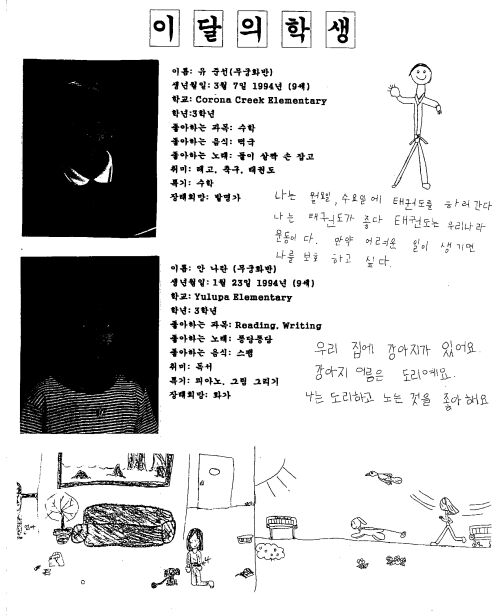 이 달 의 학 생
이름: 유 중선(무궁화반)
생년월일: 3월 7일 1994년 (9세)
학교: Corona Creek Elementary
학년:3학년
좋아하는 과목: 수학
좋아하는 음식: 떡국
좋아하는 노래: 둘이 살짝 손 잡고
취미: 태고, 축구, 태권도
특기: 수학
장래희망: 발명가
나는 월요일, 수요일에 태권도를 하러 간다
나는 태권도가 좋다 태권도는 우리나라
운동이다. 만약 어려운 일이 생기면
나를 보호 하고 싶다.
이름: 안 나란 (무궁화반)
생년월일: 1월 23일 1994년 (9세)
학교: Yulupa Elementary
학년: 3학년
좋아하는 과목: Reading, Writing
좋아하는 노래: 퐁당퐁당
좋아하는 음식: 스팸
취미: 독서
특기: 피아노, 그림 그리기
장래희망: 화가
우리 집에 강아지가 있어요.
강아지 이름은 도리예요.
나는 도리하고 노는 것을 좋아해요